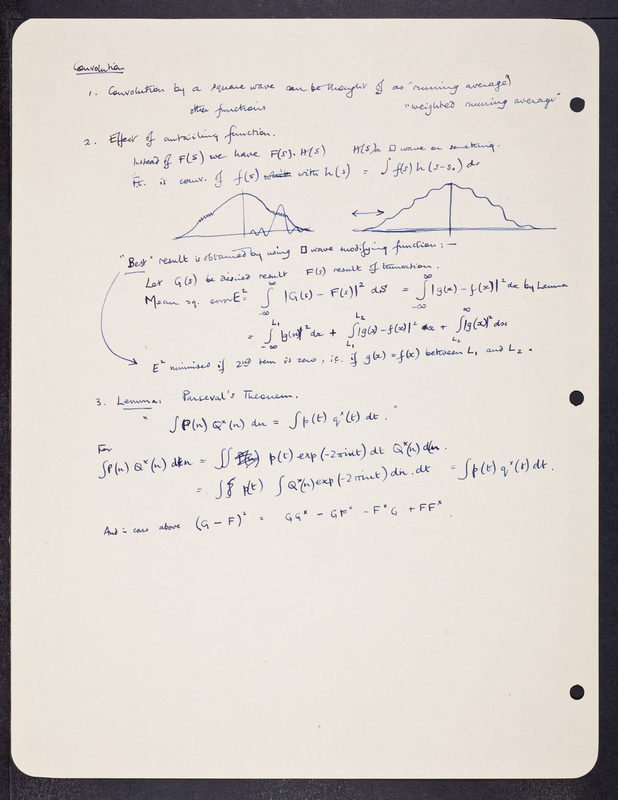 Convolution
1. Convolution by a square wave can be thought of as "running average"
other functions "weighted running average"
2. Effect of antiailing function.
Instead of F(S) we have F(S). H(S) H(S) is □ wave or something.
F.t. is conv. of f(s) with h(s) = ∫ f(s) h(s-s₀) ds
"Best" result is obtained by using □ wave modifying function: —
Let G(s) be desired result F(s) result of truncation.
Mean sq. error E² = ∫_{-∞}^{∞} |G(s) - F(s)|² ds = ∫_{-∞}^{∞} |g(x) - f(x)|² dx by Lemma
= ∫_{-∞}^{L₁} |g(x)|² dx + ∫_{L₁}^{L₂} |g(x) - f(x)|² dx + ∫_{L₂}^{∞} |g(x)|² dx
E² minimised if 2nd term is zero, i.e. if g(x) = f(x) between L₁ and L₂.
3. Lemma: Parseval's Theorem.
" ∫ P(n) Q*(n) dn = ∫ p(t) q*(t) dt. "
For
∫ P(n) Q*(n) dn = ∫∫ p(t) exp(-2πint) dt Q*(n) dn.
= ∫∫ p(t) ∫ Q*(n) exp(-2πint) dn . dt = ∫ p(t) q*(t) dt.
And in case above (G - F)² = GG* - GF* - F*G + FF*.